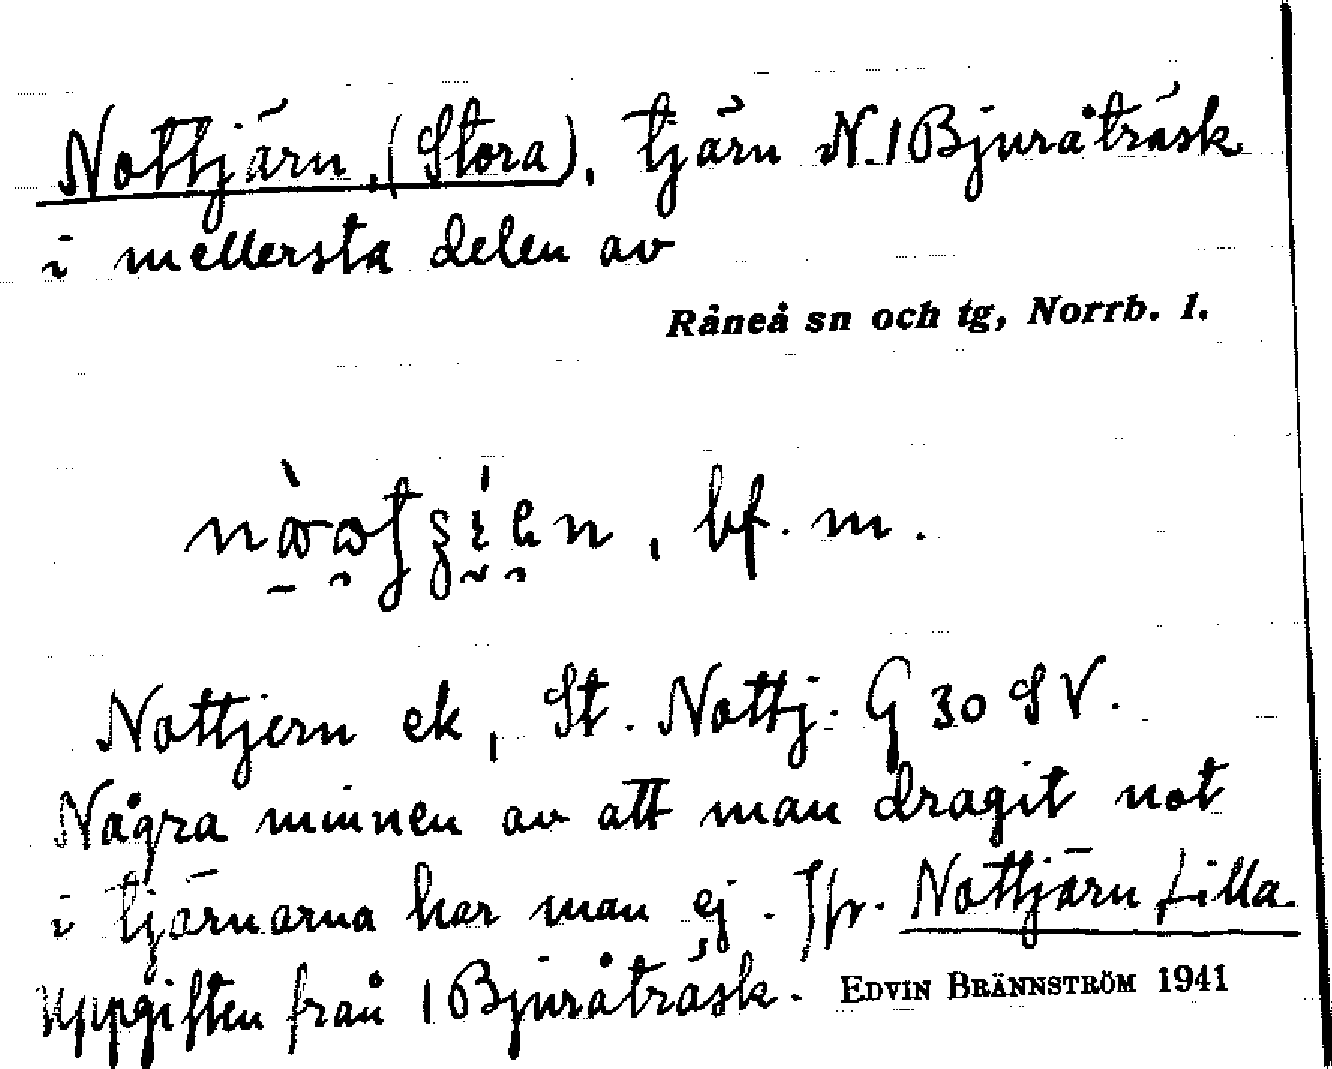 Nottjärn, (Stora), tjärn N. 1 Bjuråträsk
i mellersta delen av
Råneå sn och tg, Norrb. l.
, bf. m.
Nottjern ek, St. Nottj. G 30 SV.
Några minnen av att man dragit not
i tjärnarna har man ej. Jfr. Nottjärn Lilla.
Uppgiften från 1 Bjuråträsk. EDVIN BRÄNNSTRÖM 1941